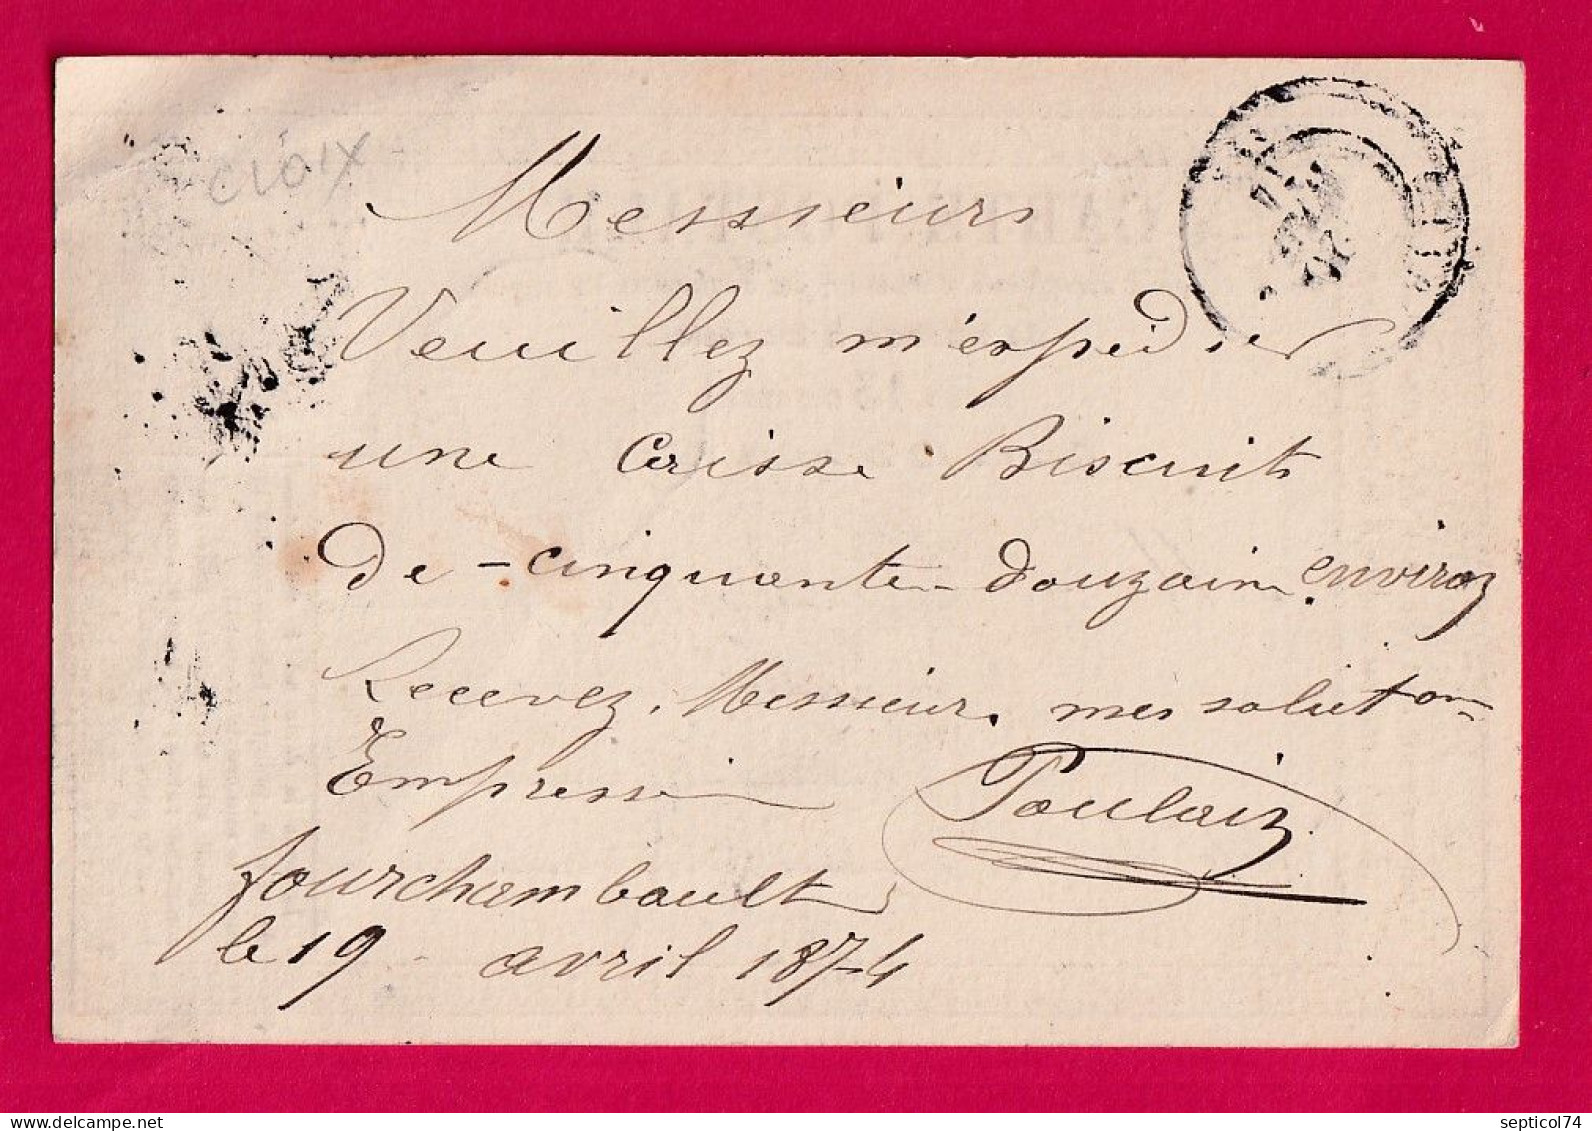 croix
Messieurs
Veuillez m'expédier
une Caisse Biscuit
de - cinquante - douzain environ
Recevez, Messieur, mes salutation
Empressé
Poulain
fourchambault
le 19 avril 1874
septicol74